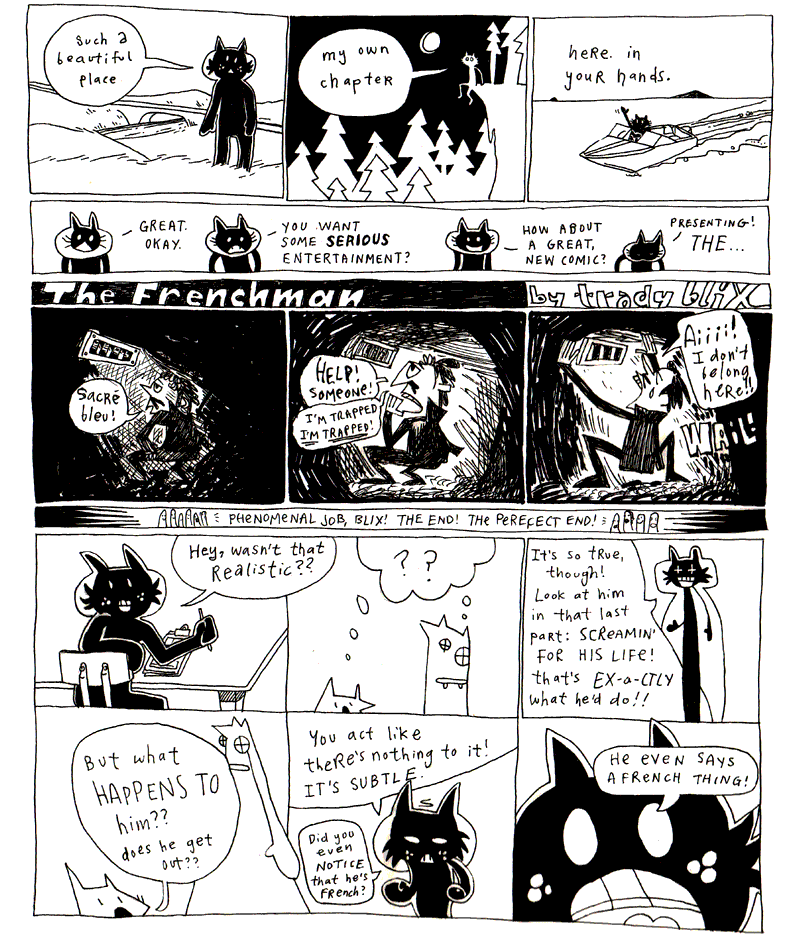 Such a
beautiful
place
my own
chapter
here. in
your hands.
GREAT.
OKAY.
YOU WANT
SOME SERIOUS
ENTERTAINMENT?
HOW ABOUT
A GREAT,
NEW COMIC?
PRESENTING!
THE...
The Frenchman
by trady blix
Sacré
bleu!
HELP!
SOMEONE!
I'M TRAPPED
I'M TRAPPED!
Aiiii!
I don't
belong
here!!
WAIL!
AAAAAH! PHENOMENAL JOB, BLIX! THE END! THE PEREFECT END!
Hey, wasn't that
Realistic??
??
It's so true,
though!
Look at him
in that last
part: SCREAMIN'
FOR HIS LIFE!
that's EX-a-CTLY
what he'd do!!
But what
HAPPENS TO
him??
does he get
out??
You act like
there's nothing to it!
IT'S SUBTLE.
Did you
even
NOTICE
that he's
French?
HE EVEN SAYS
A FRENCH THING!